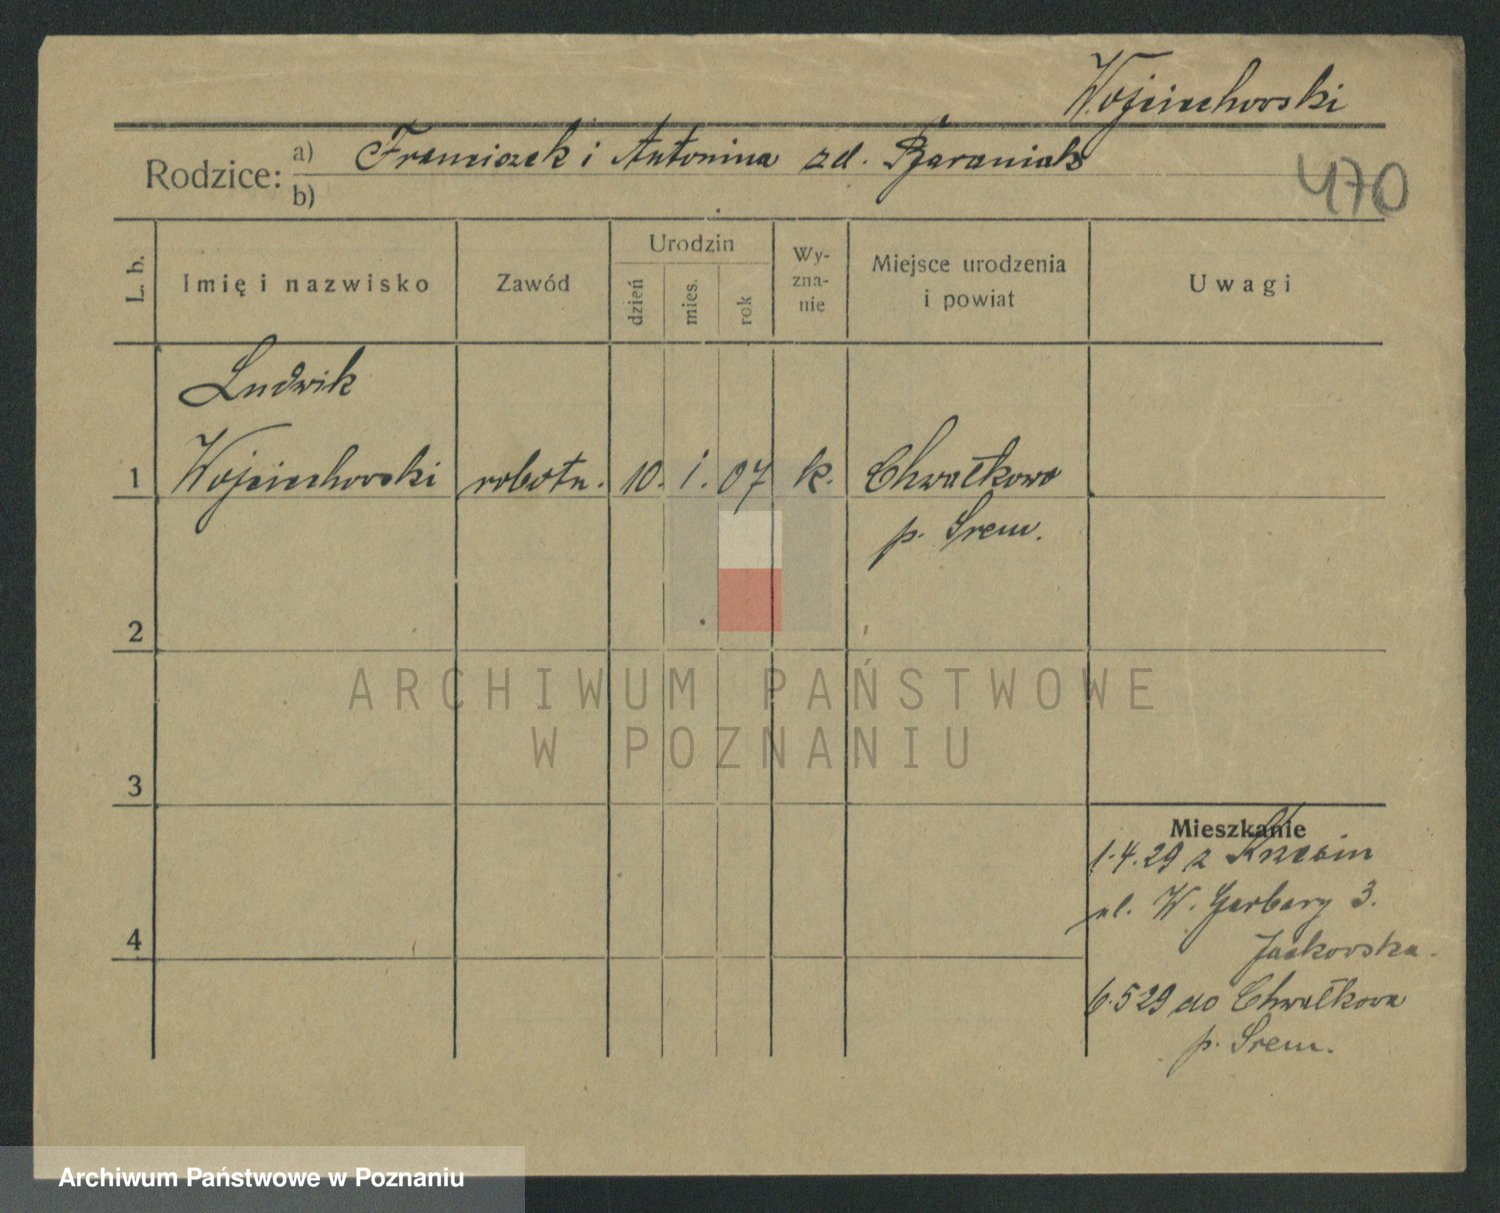 Wojciechowski
Rodzice: a) Franciszek i Antonina zd.
b)
470
L. b.
Imię i nazwisko
Zawód
Urodzin
dzień
mies.
rok
Wy-
zna-
nie
Miejsce urodzenia
i powiat
Uwagi
Ludwik
1 Wojciechowski robotn. 10. 1. 07 k. Chwałkowo
p. Śrem.
2
ARCHIWUM PAŃSTWOWE
W POZNANIU
3
Mieszkanie
1.4.29 z Krzesin
ul. W. Garbary 3.
Jackowska.
4
6.5 29 do Chwałkowa
p. Śrem.
Archiwum Państwowe w Poznaniu